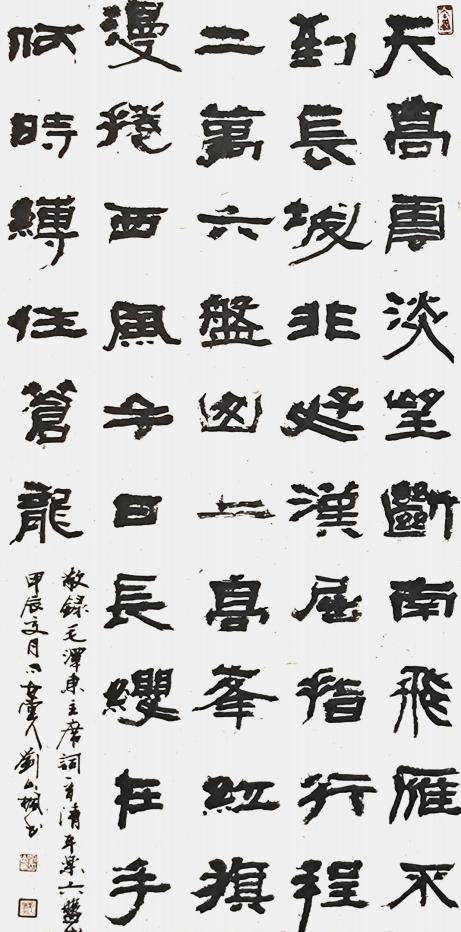 天高雲淡望斷南飛雁不
到長城非好漢屈指行程
二萬六盤山上高峯紅旗
漫捲西風今日長纓在手
何時縛住蒼龍
敬録毛澤東主席詞清平樂六盤山
甲辰月劉書